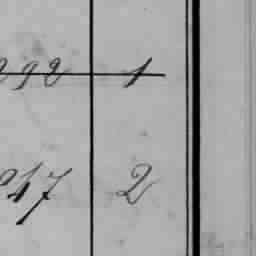 292 1
247 2